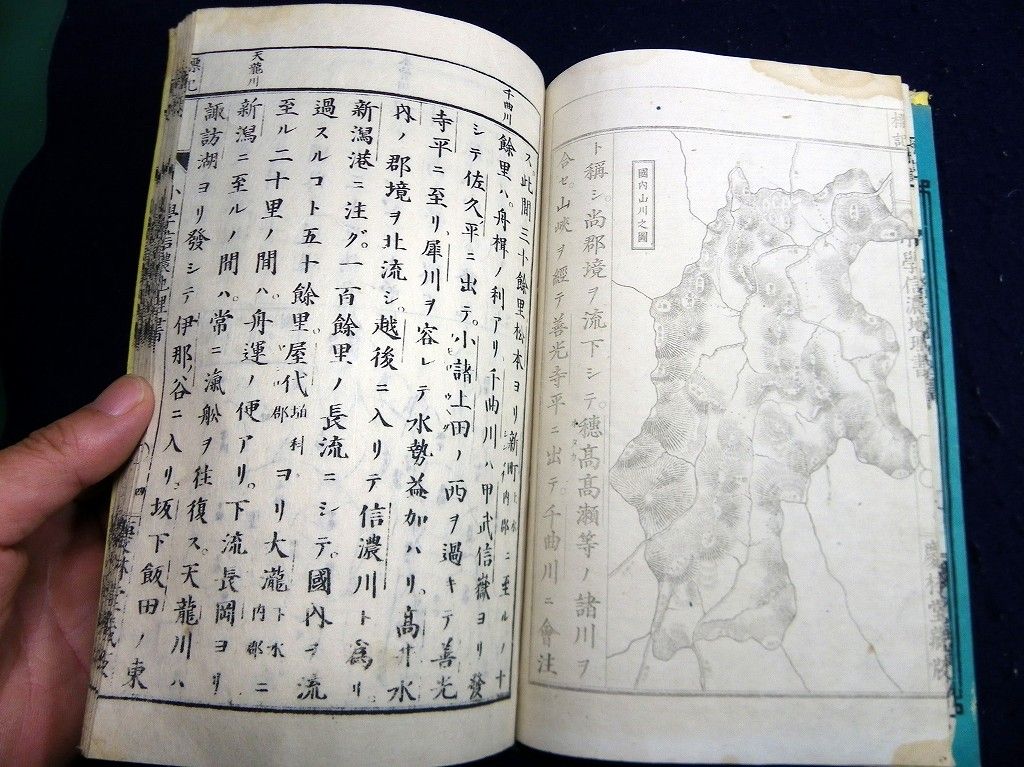 國內山川之圖
ト稱シ尚郡境ヲ流下シテ穗髙髙瀬等ノ諸川ヲ
合セ山峽ヲ經テ善光寺平ニ出テ千曲川ニ會注
千曲川
ス。此間三十餘里松本ヨリ新町上水內郡ニ至ルノ十
餘里ハ舟楫ノ利アリ千曲川ハ甲武信嶽ヨリ發
シテ佐久平ニ出テ。小諸上田ノ西ヲ過キテ善光
寺平ニ至リ犀川ヲ容レテ水勢益加ハリ。髙井水
內ノ郡境ヲ北流シ。越後ニ入リテ信濃川ト爲リ。
新潟港ニ注グ。一百餘里ノ長流ニシテ。國內ヲ流
過スルコト五十餘里屋代埴科郡ヨリ大瀧下水內郡ニ
至ル二十里ノ間ハ。舟運ノ便アリ。下流長岡ヨリ
新潟ニ至ルノ間ハ。常ニ滊舩ヲ往復ス。天龍川ハ
天龍川
諏訪湖ヨリ發シテ伊那ノ谷ニ入リ。坂下飯田ノ東
標記
小學信濃地理書
四